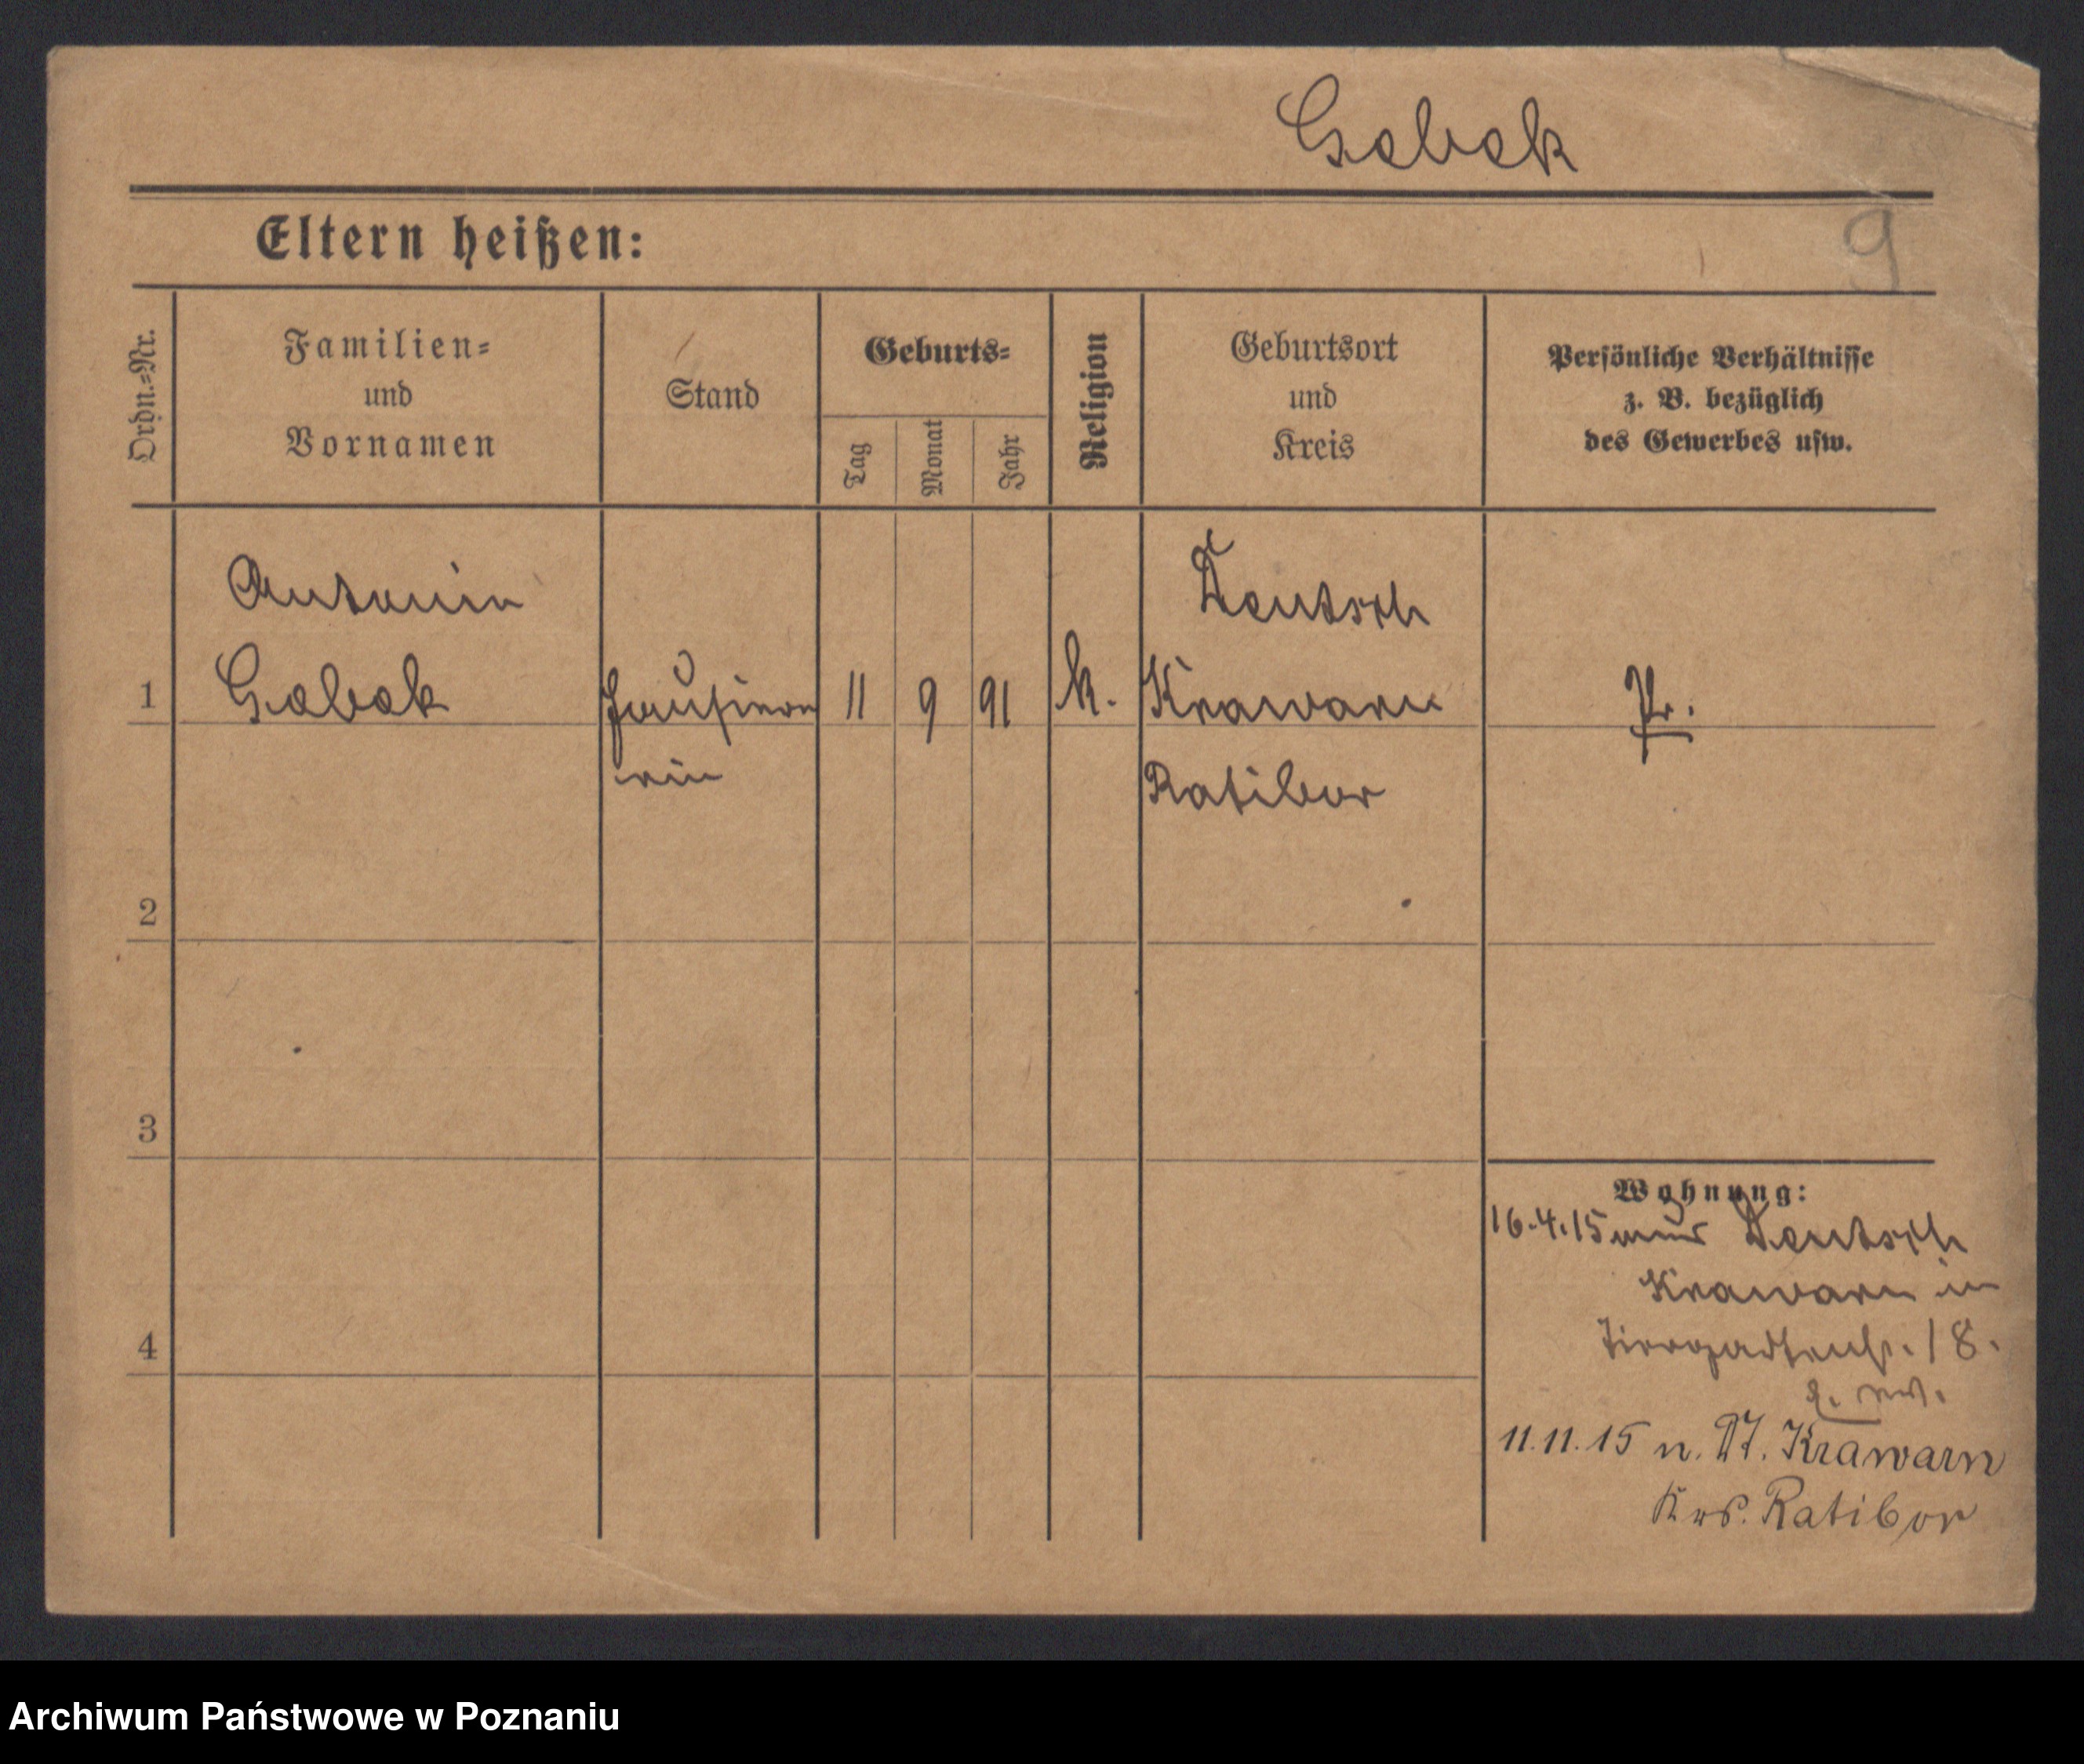 Gabek
Eltern heißen:
9
Ordn.=Nr.
Familien=
und
Vornamen
Stand
Geburts=
Tag
Monat
Jahr
Religion
Geburtsort
und
Kreis
Persönliche Verhältnisse
z. B. bezüglich
des Gewerbes usw.
Antonia
Deutsch
1
Gabek
11
9
91
k.
Krawarn
Pr.
Ratibor
2
3
Wohnung:
16.4.15 Deutsch
Krawarn in
4
Tiergartenstr. 18.
11.11.15 n. Dt. Krawarn
Krs. Ratibor
Archiwum Państwowe w Poznaniu